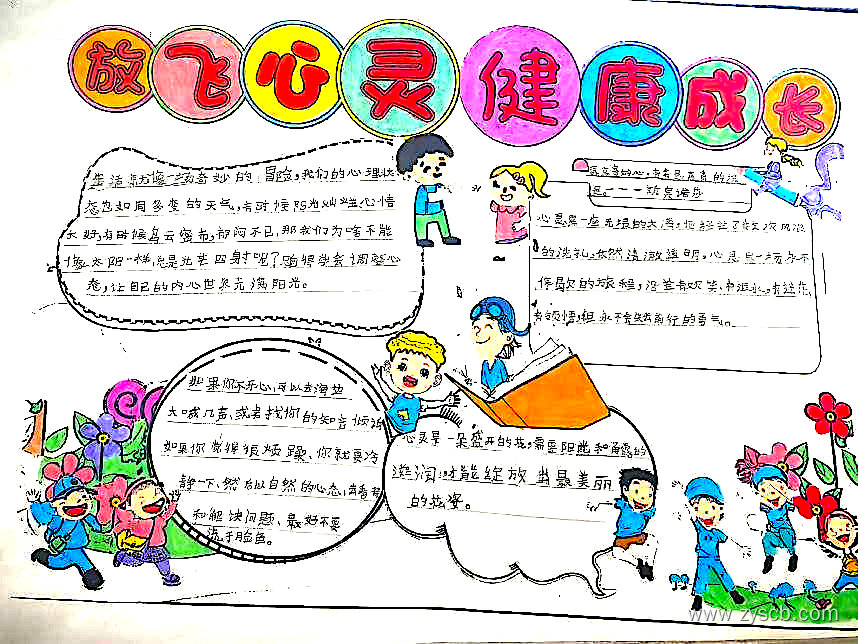 放飞心灵健康成长
生活就像一场奇妙的冒险,我们的心理状
态也如同多变的天气,有时候阳光灿烂心情
大好,有时候乌云密布,郁闷不已,那我们为啥不能
像太阳一样,总是光芒四射呢?咱得学会调整心
态,让自己的内心世界充满阳光。
心灵是一座无垠的大海,
的洗礼,依然清澈透明,心灵是一场永不
停歇的旅程,没有欢笑,有泪水,有
有烦恼,但永不失前行的勇气。
如果你不开心,可以去海边
大喊几声、或者找你的知音倾诉
如果你觉得很烦躁、你就要冷
静一下、然后以自然的心态,去看待
和解决问题、最好不要
流于脸色。
心灵是一朵盛开的花,需要阳光和雨露的
滋润,才能绽放出最美丽
的花姿。
www.zyscb.com